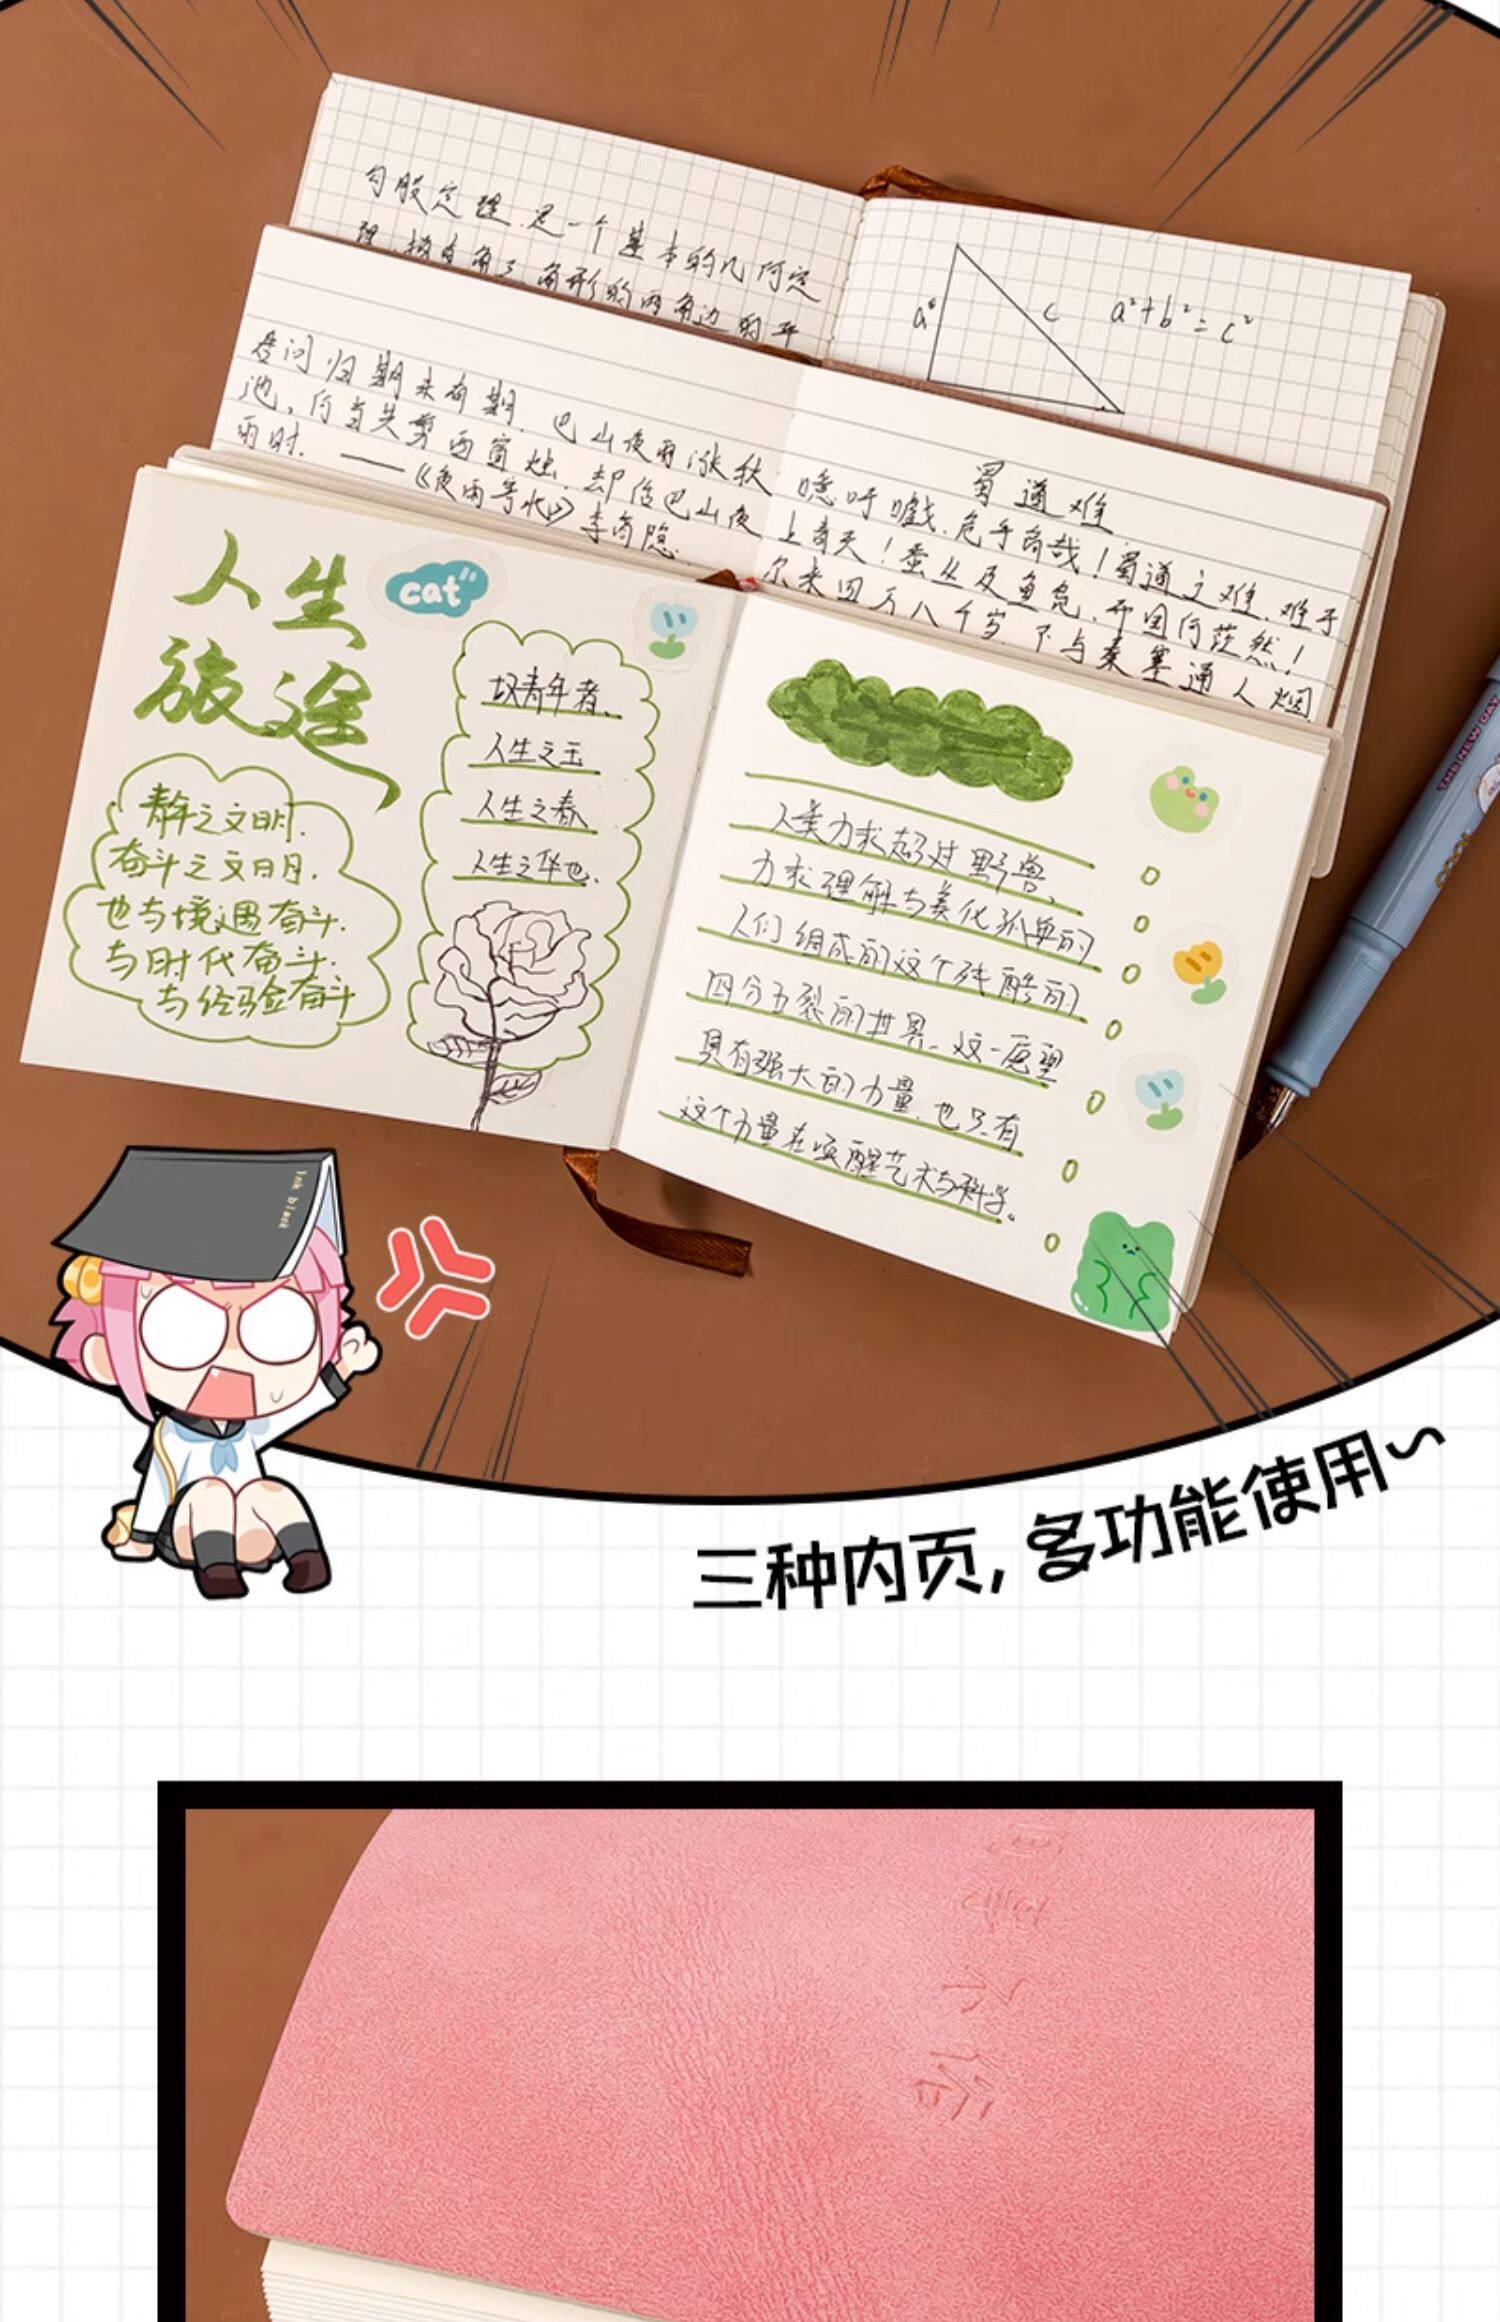 勾股定理.是一个基本的几何定
理.指直角三角形的两角边的平
a
c
a²+b²=c²
君问归期未有期.巴山夜雨涨秋
池.何当共剪西窗烛.却话巴山夜
雨时.——《夜雨寄北》李商隐.
蜀道难
噫吁嚱.危乎高哉!蜀道之难.难于
上青天!蚕丛及鱼凫.开国何茫然!
尔来四万八千岁.不与秦塞通人烟
人生
旅途
cat
静之文明.
奋斗之文明.
也与境遇奋斗.
与时代奋斗.
与经验奋斗
故青年者、
人生之王
人生之春
人生之华也.
人类力求超过野兽、
力求理解与美化孤单的
人们组成的这个残酷的
四分五裂的世界.这一愿望
具有强大的力量.也只有
这个力量在唤醒艺术与科学。
THE NEW DAY
Ink black
三种内页,多功能使用~